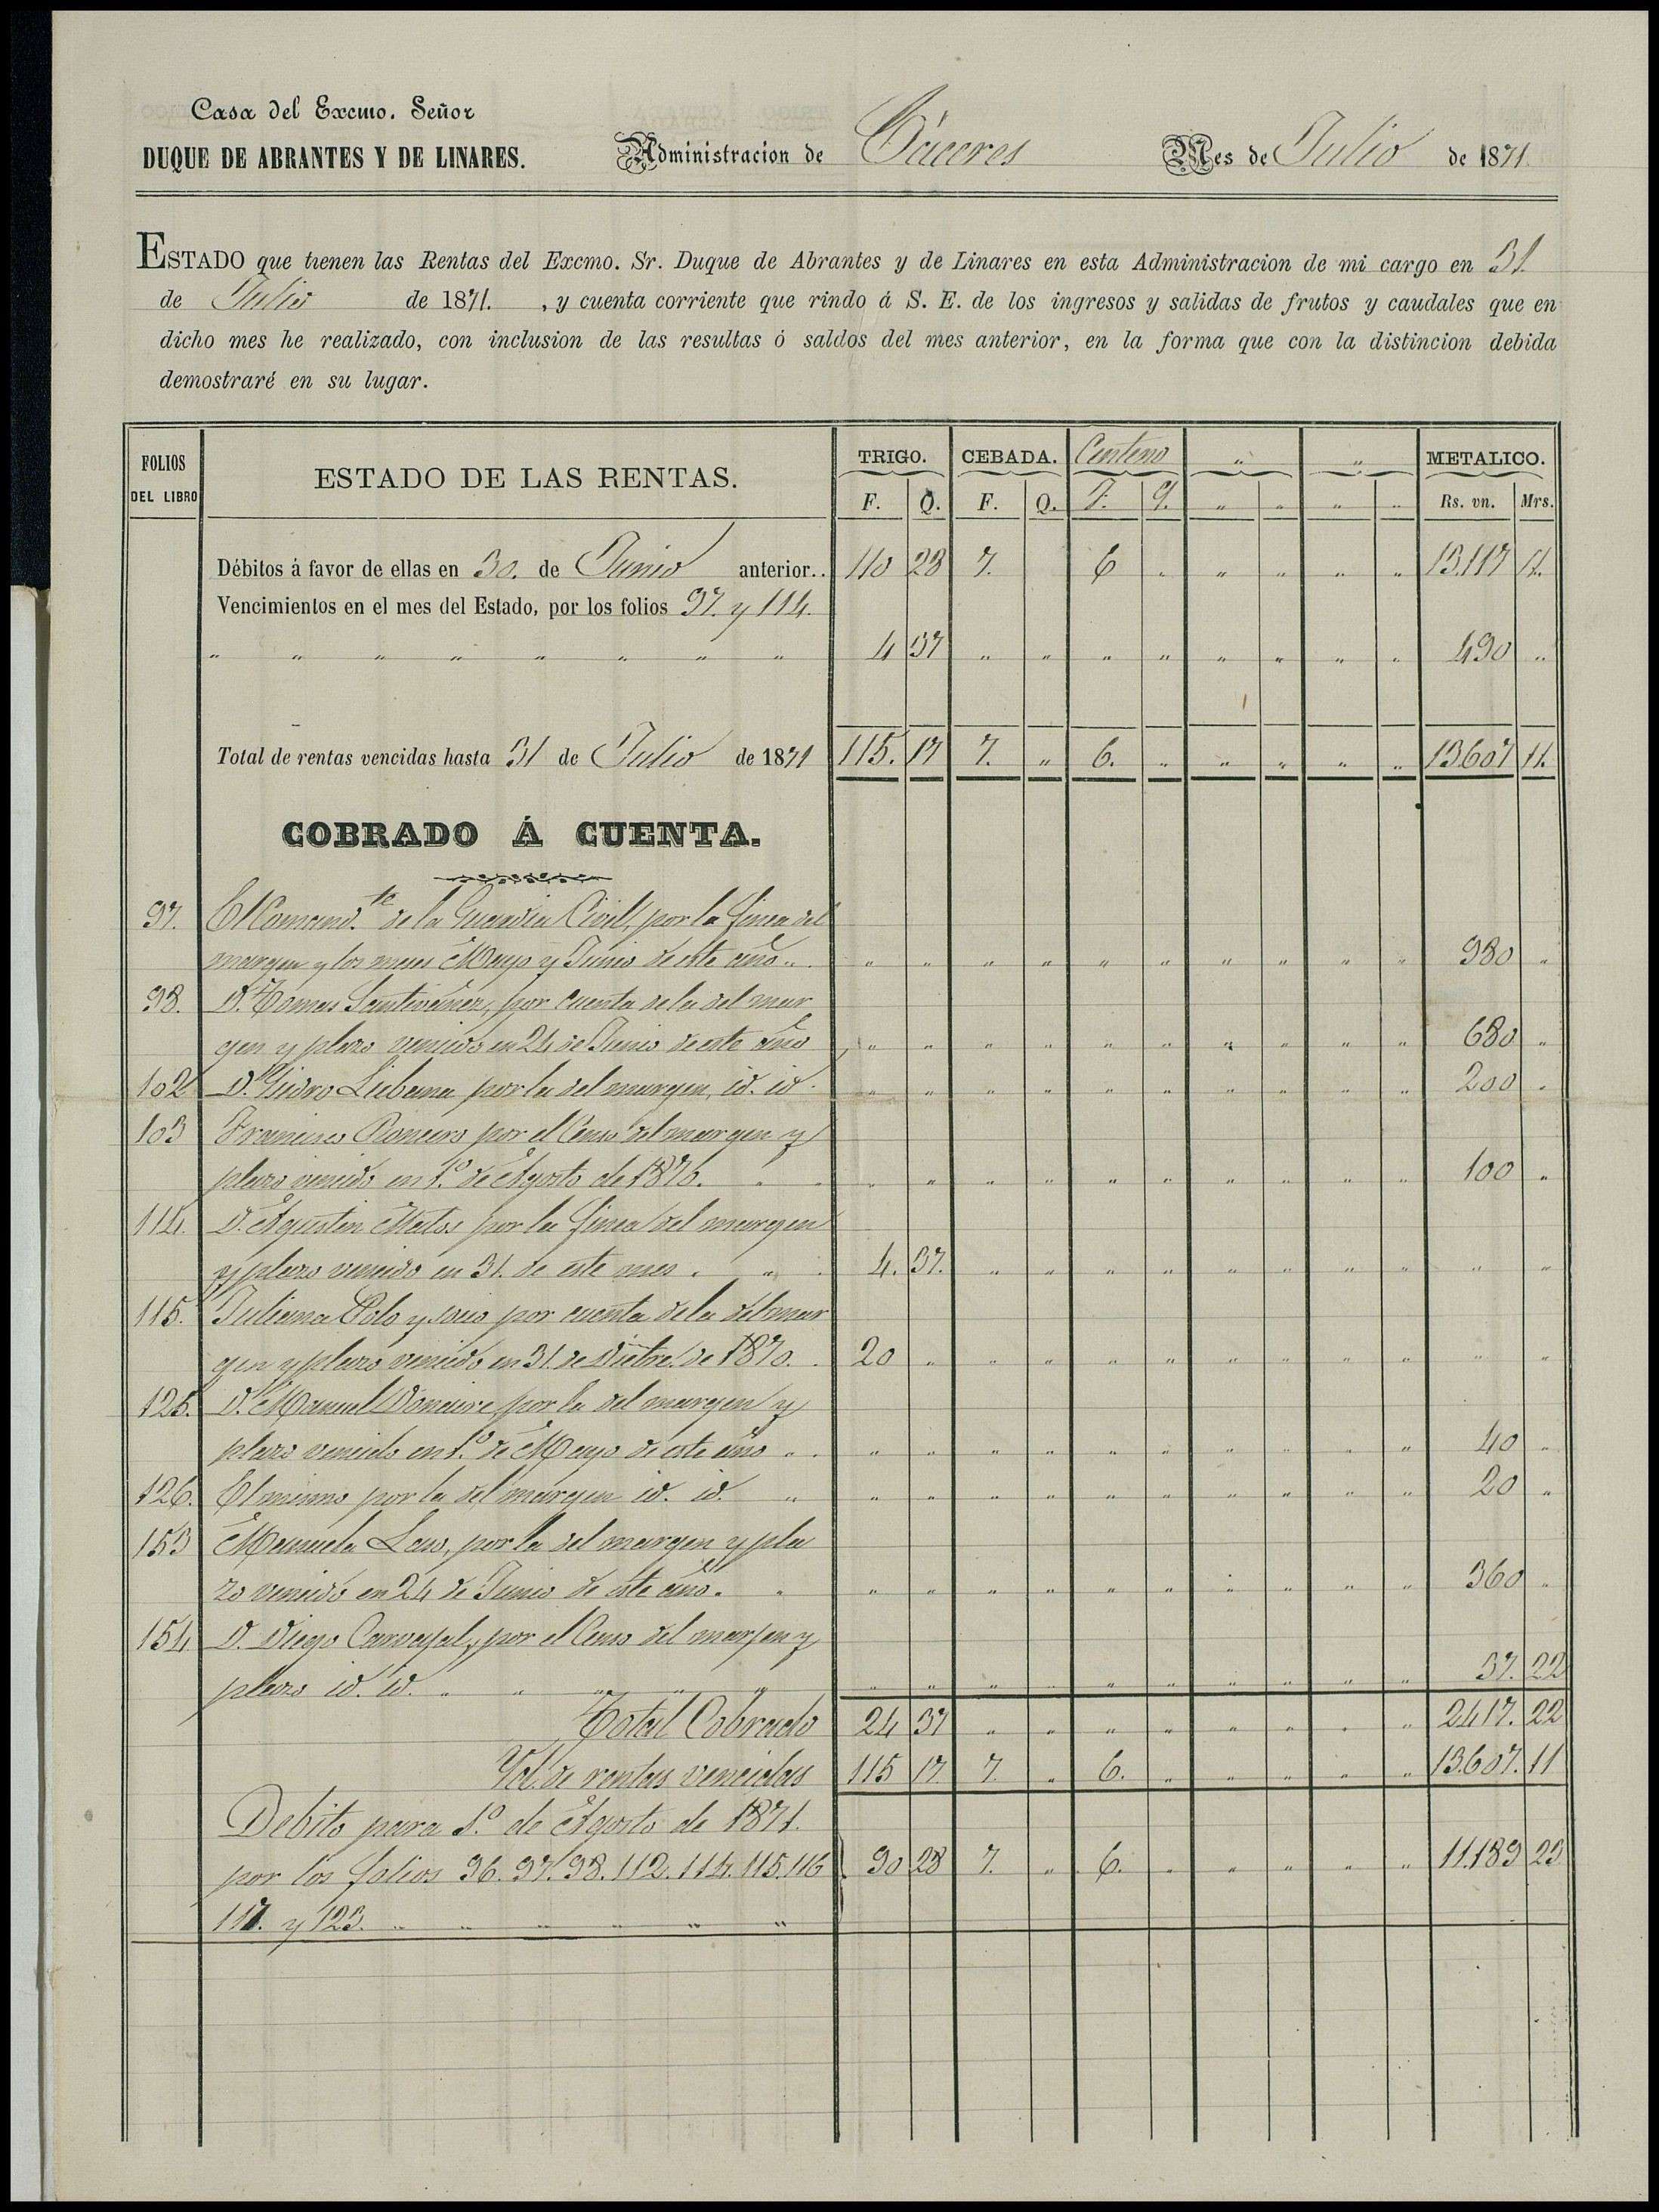 Casa del Excmo. Señor
DUQUE DE ABRANTES Y DE LINARES.
Administracion de Cáceres
Mes de Julio de 1871.
ESTADO que tienen las Rentas del Excmo. Sr. Duque de Abrantes y de Linares en esta Administracion de mi cargo en 31.
de Julio de 1871. , y cuenta corriente que rindo á S. E. de los ingresos y salidas de frutos y caudales que en
dicho mes he realizado, con inclusion de las resultas ó saldos del mes anterior, en la forma que con la distincion debida
demostraré en su lugar.
FOLIOS DEL LIBRO ESTADO DE LAS RENTAS. TRIGO. CEBADA. Centeno " " METALICO.
F. Q. F. Q. F. Q. " " " " Rs. vn. Mrs.
Débitos á favor de ellas en 30. de Junio anterior.. 110 28 7. 6 " " " " " 13.117 11.
Vencimientos en el mes del Estado, por los folios 97. y 114.
" " " " " " " " 4 37 " " " " " " " " 490 "
Total de rentas vencidas hasta 31 de Julio de 1871 115. 17 7. " 6. " " " " " 13607 11.
COBRADO Á CUENTA.
97. El Comand.te de la Guardia Civil, por la finca del
margen y los meses Mayo y Junio de este año " " " " " " " " " " 980 "
98. D. Tomas Santivañez, por cuenta de la del mar
gen y plazo vencido en 24 de Junio de este año " " " " " " " " " " 680 "
102 D. Isidro Liebana por la del margen, id. id. " " " " " " " " " " 200 "
103 Francisco Romero por el Censo del margen y
plazo vencido en 1.º de Agosto de 1870. " " " " " " " " " " 100 "
114. D. Agustin Matos por la finca del margen
y plazo vencido en 31. de este mes. " 4. 37. " " " " " " " " " "
115. Juliana Polo y socio por cuenta de la del mar
gen y plazo vencido en 31. de Dicbre. de 1870. 20 " " " " " " " " " " "
125. D. Manuel por la del margen y
plazo vencido en 1.º de Mayo de este año " " " " " " " " " " 40 "
126. El mismo por la del márgen id. id. " " " " " " " " " " 20 "
153 Manuela Laso, por la del margen y pla
zo vencido en 24 de Junio de este año. " " " " " " " " " " 360 "
154. D. Diego Carvajal, por el Censo del margen y
plazo id. id. " " " " " " " " " " " " " " 37. 22
Total Cobrado 24 37 " " " " " " " " 2417. 22
Yd. de rentas vencidas 115 17. 7. " 6. " " " " " 13.607. 11
Debito para 1.º de Agosto de 1871.
por los folios 96. 97. 98. 112. 114. 115. 116 90 28 7. " 6. " " " " " 11.189 23
117. y 123. " " " " " "